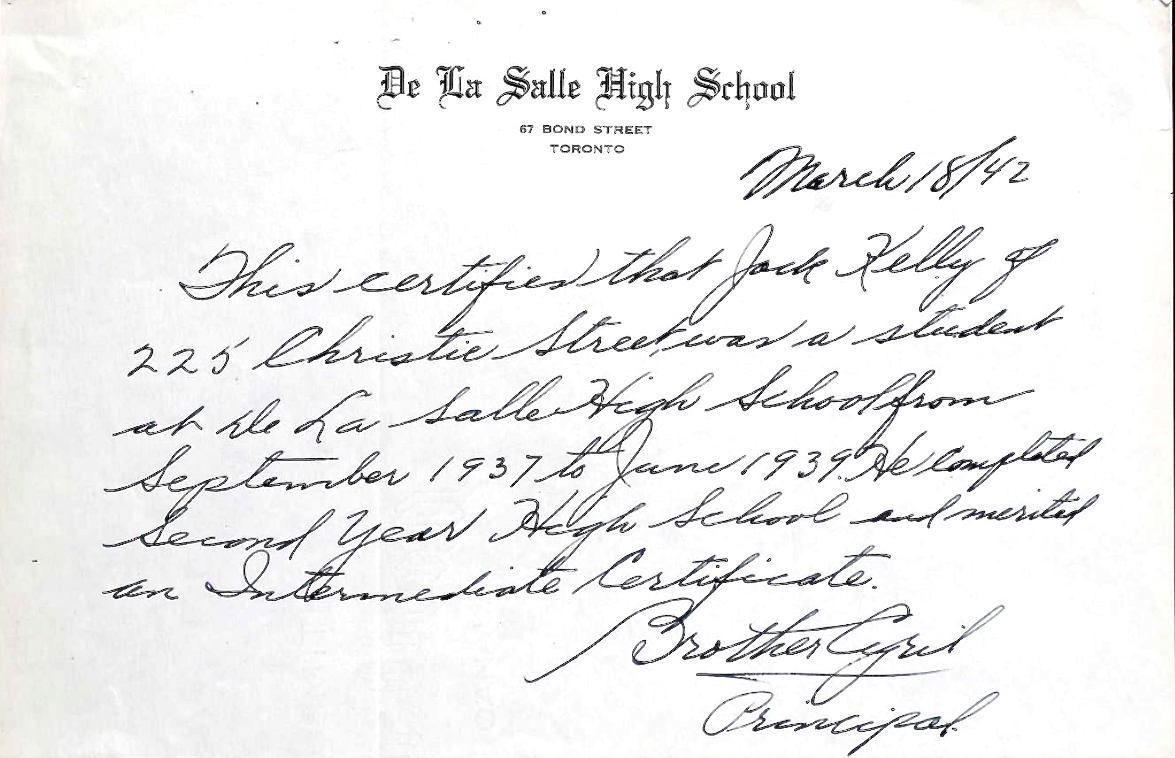 De La Salle High School
67 BOND STREET
TORONTO
March 18/42
This certifies that Jack Kelly of
225 Christie Street, was a student
at De La Salle High School from
September 1937 to June 1939. He completed
Second Year High School and merited
an Intermediate Certificate.
Brother Cyril
Principal.